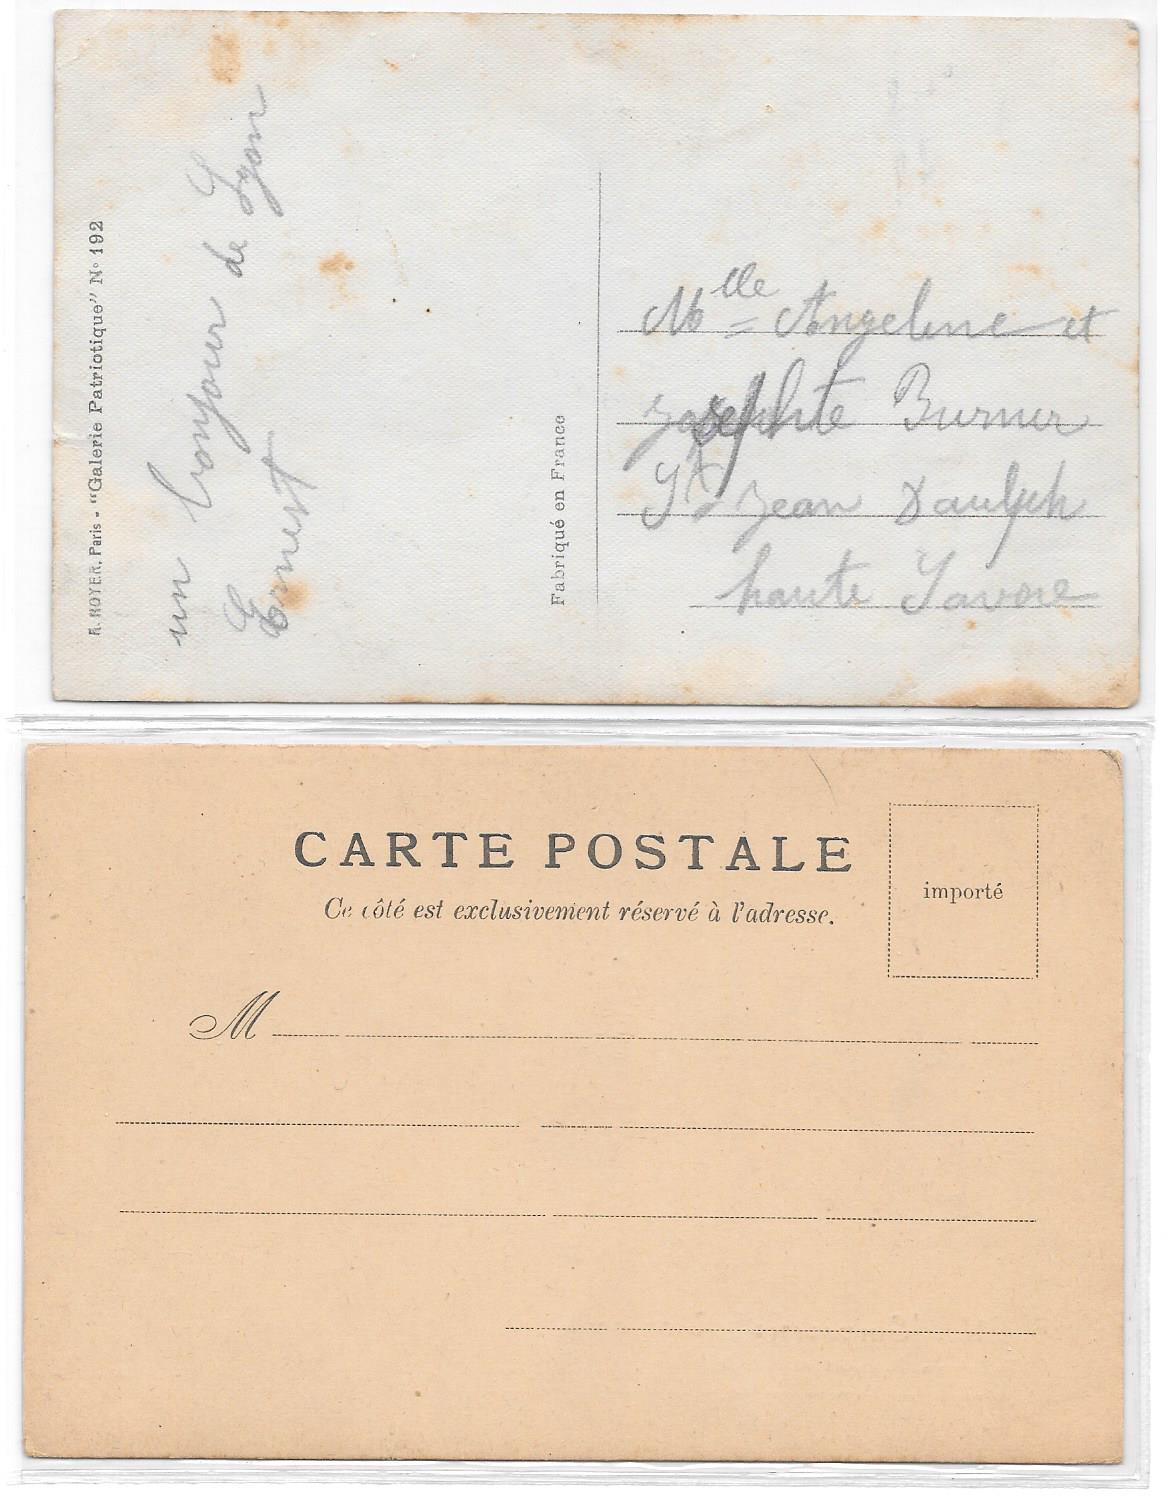 R. NOYER, Paris - "Galerie Patriotique" N° 192
un bonjour de Lyon
Ernest
Fabriqué en France
Mlle Angeline et
Burnier
St Jean Daulph
haute Savoie
CARTE POSTALE
Ce côté est exclusivement réservé à l'adresse.
importé
M